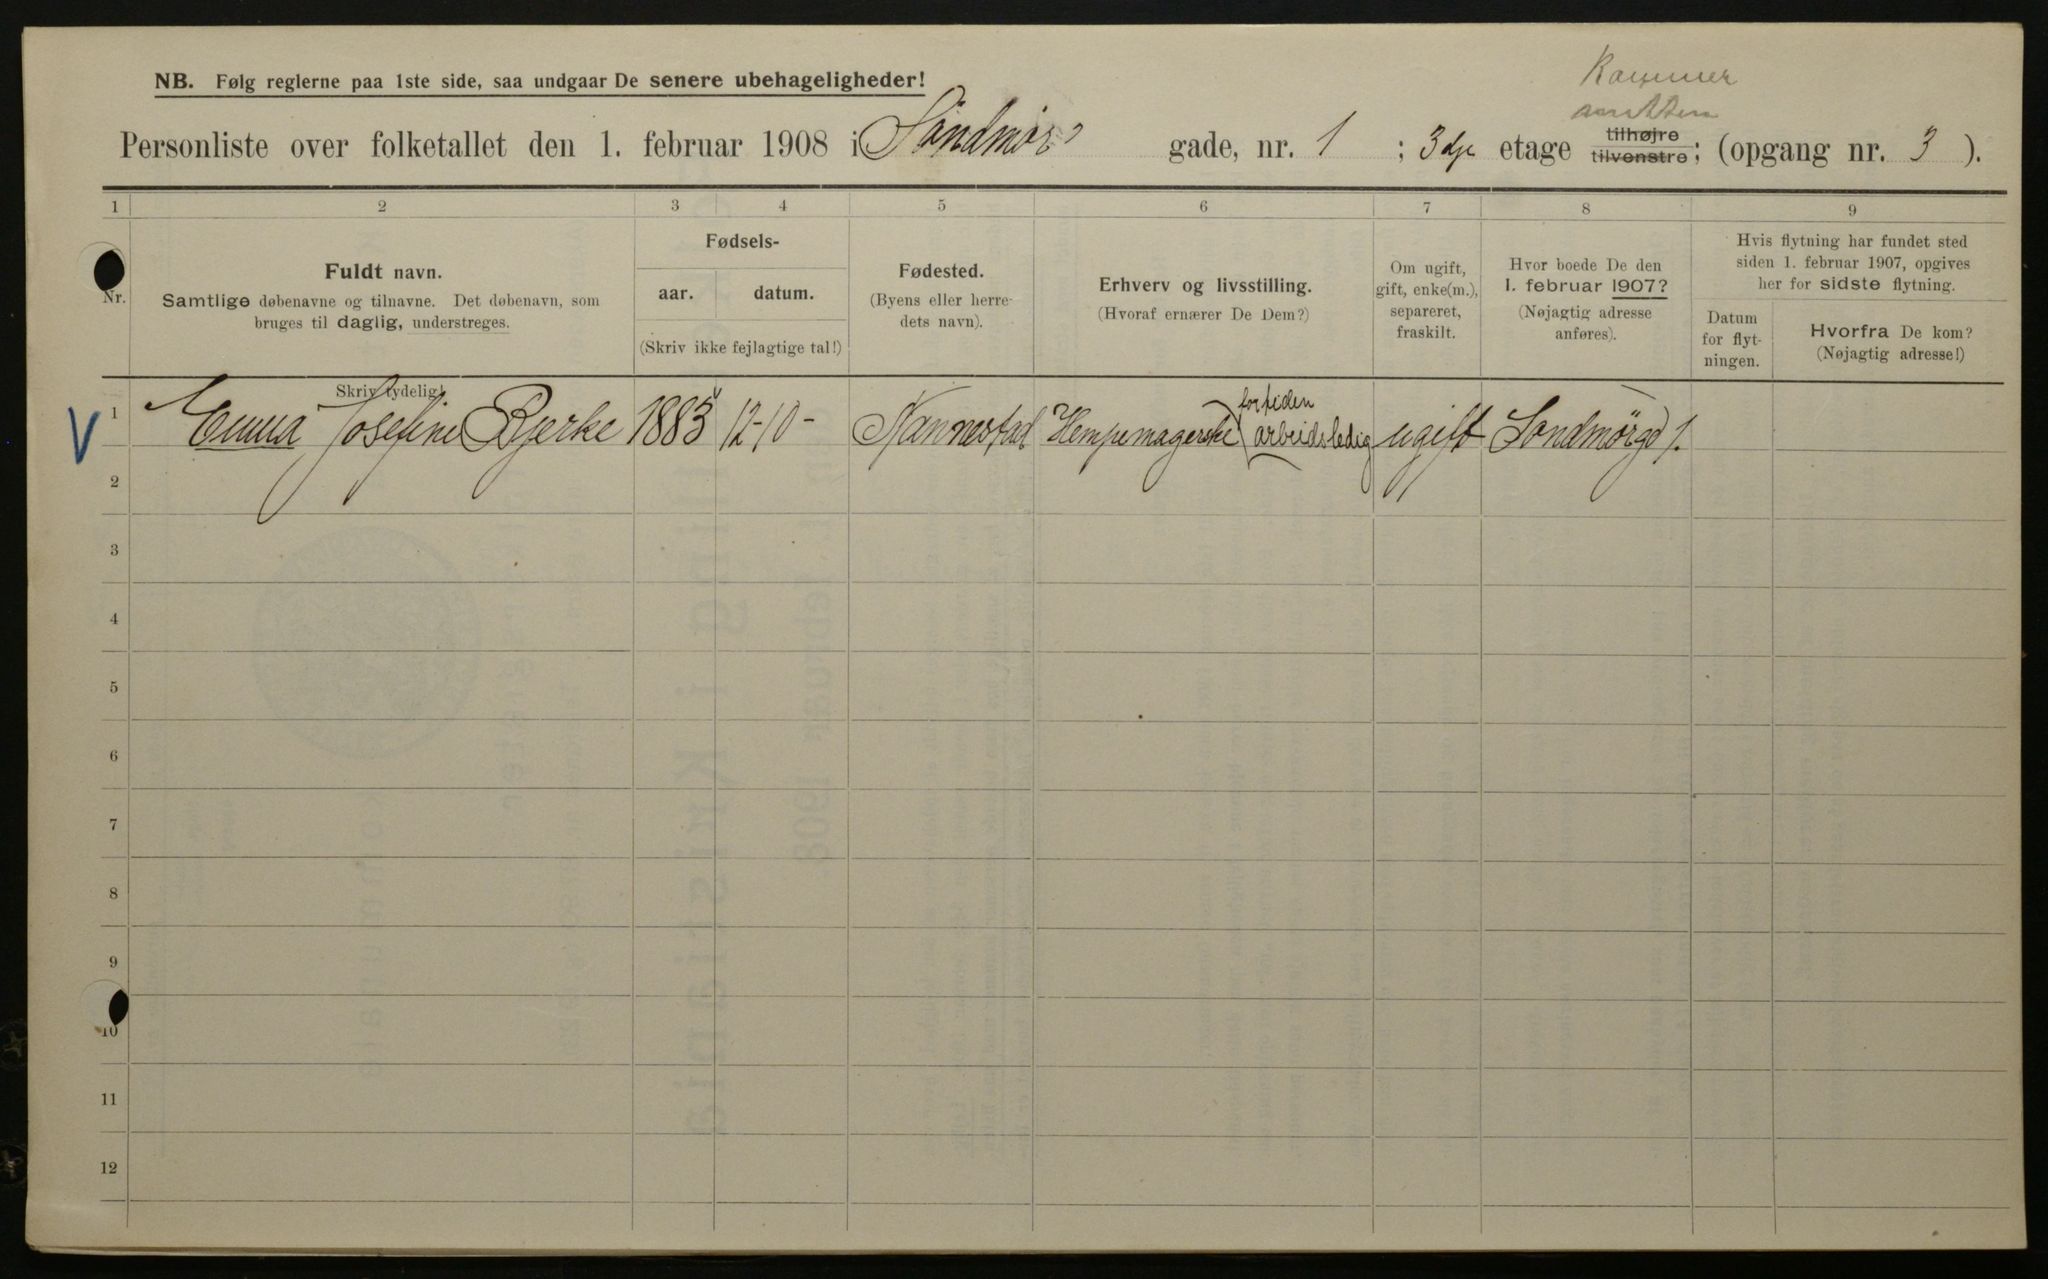 Kammer
NB. Følg reglerne paa 1ste side, saa undgaar De senere ubehageligheder!
Personliste over folketallet den 1. februar 1908 i Søndmørs gade, nr. 1 ; 3dje etage tilhøjre tilvenstre; (opgang nr. 3 ).
1 2 3 4 5 6 7 8 9
Nr.
Fuldt navn.
Samtlige døbenavne og tilnavne. Det døbenavn, som
bruges til daglig, understreges.
Fødsels-
aar. datum.
(Skriv ikke fejlagtige tal!)
Fødested.
(Byens eller herre-
dets navn).
Erhverv og livsstilling.
(Hvoraf ernærer De Dem?)
Om ugift,
gift, enke(m.),
separeret,
fraskilt.
Hvor boede De den
1. februar 1907?
(Nøjagtig adresse
anføres).
Hvis flytning har fundet sted
siden 1. februar 1907, opgives
her for sidste flytning.
Datum
for flyt-
ningen.
Hvorfra De kom?
(Nøjagtig adresse!)
Skriv tydelig!
V 1 Emma Josefine Bjerke 1883 12-10- Nannestad Hempemagerske fortiden arbeidsledig ugift Sondmørgd 1.
2
3
4
5
6
7
8
9
10
11
12